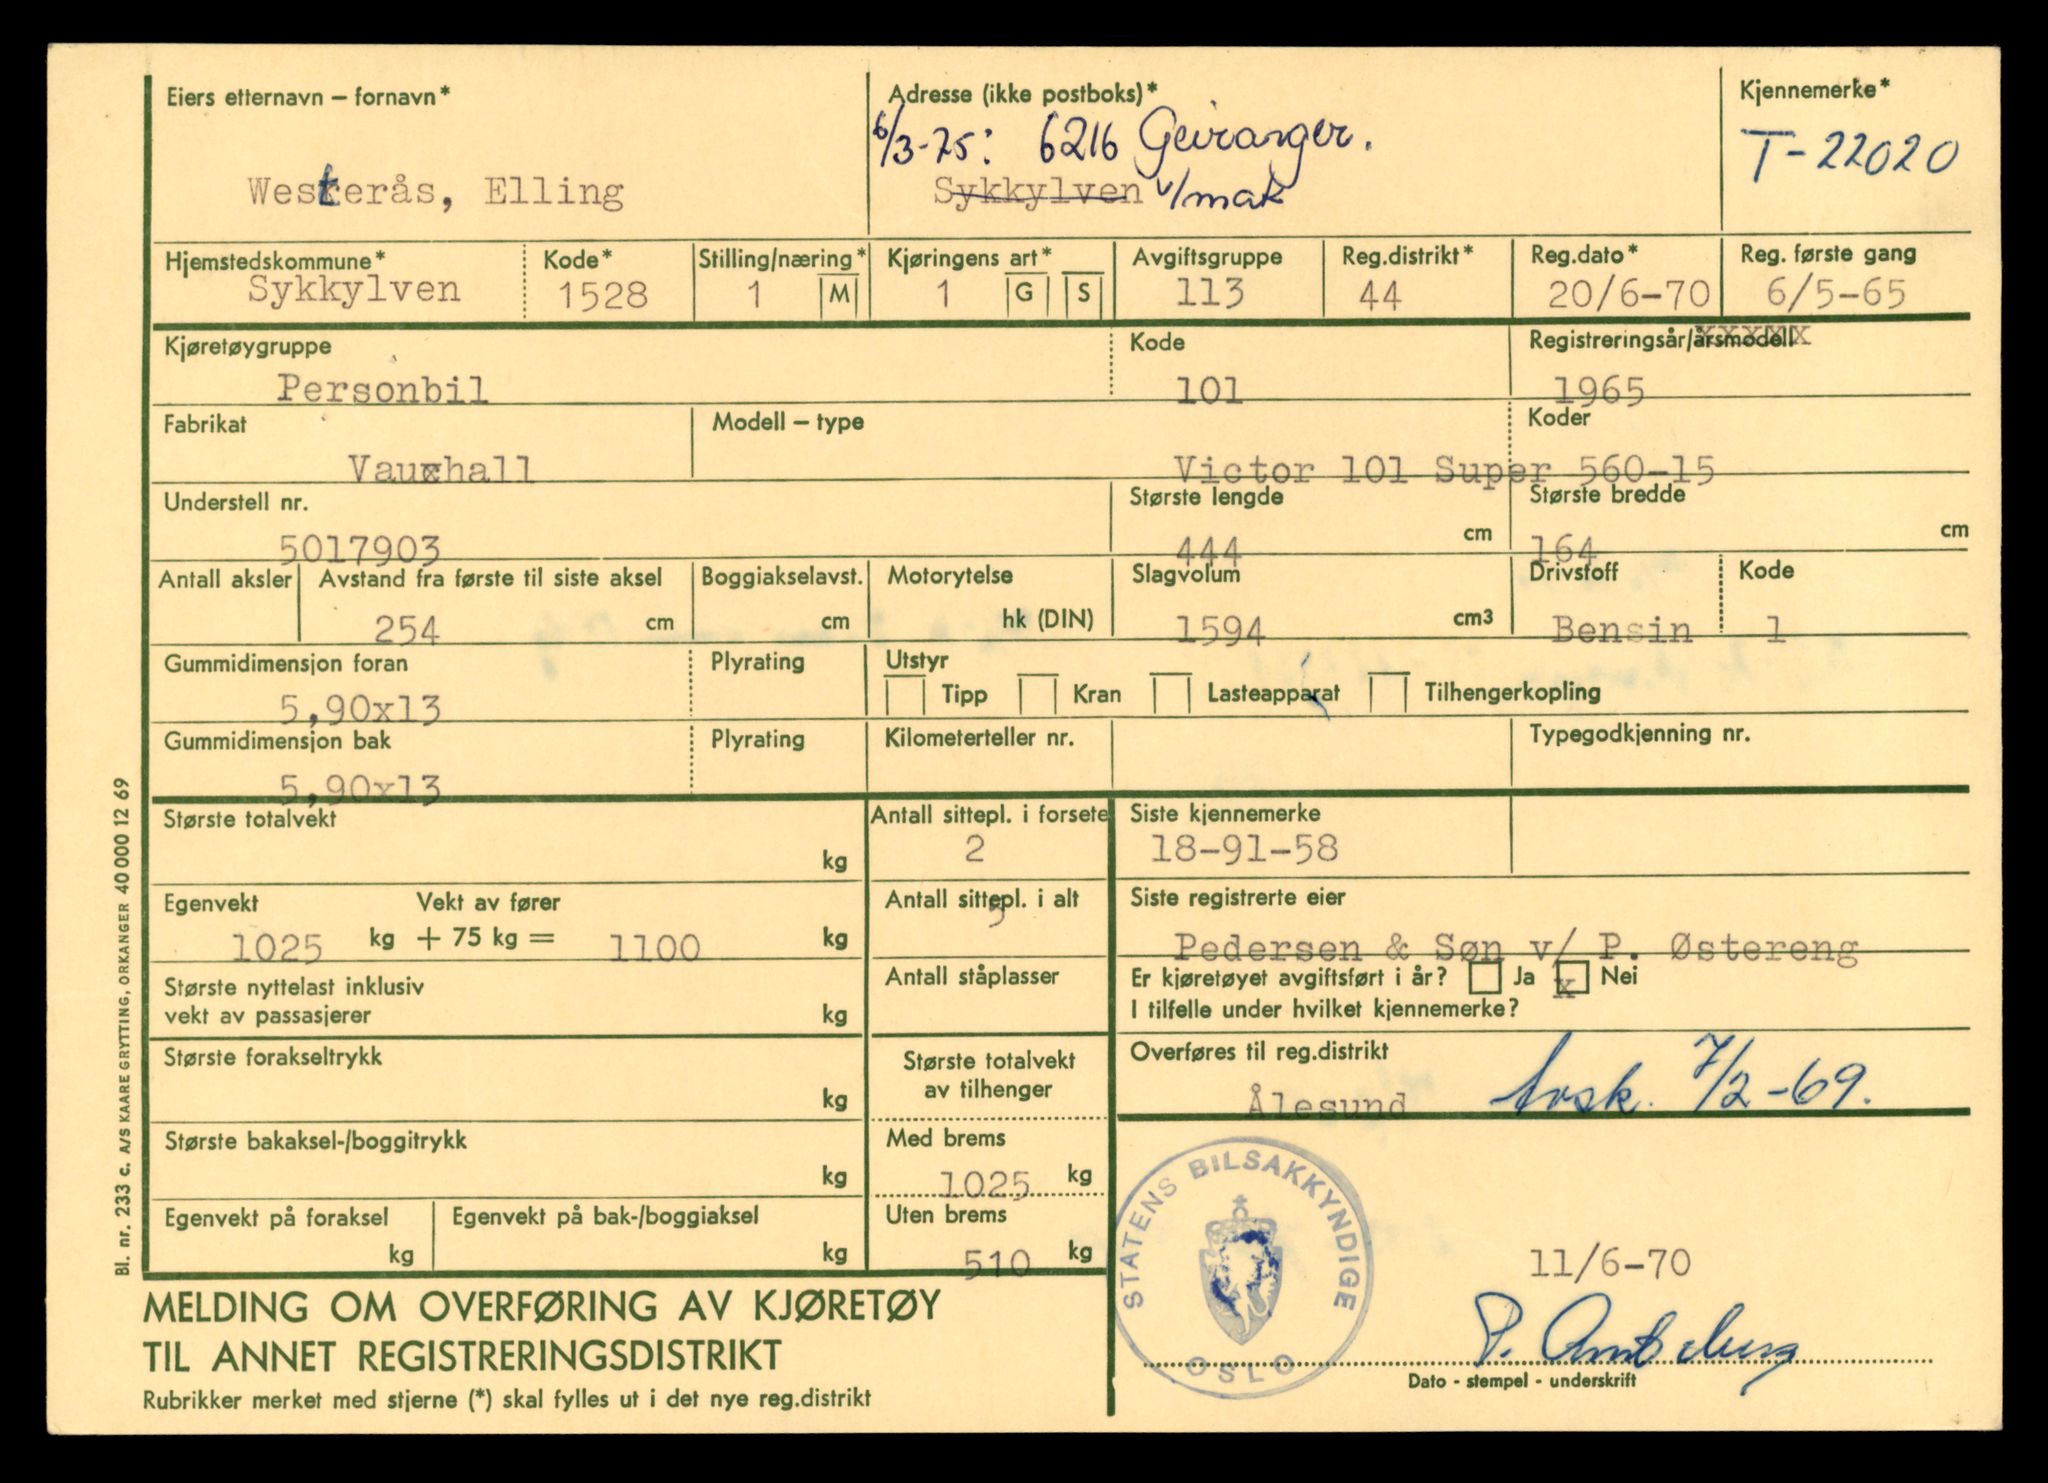 Eiers etternavn – fornavn*
Westerås, Elling
Adresse (ikke postboks)*
6/3-75: 6216 Geiranger.
Sykkylven v/mak
Kjennemerke*
T-22020
Hjemstedskommune*
Sykkylven
Kode*
1528
Stilling/næring*
1 M
Kjøringens art*
1 G S
Avgiftsgruppe
113
Reg.distrikt*
44
Reg.dato*
20/6-70
Reg. første gang
6/5-65
Kjøretøygruppe
Personbil
Kode
101
Registreringsår/årsmodell
xxxxx
1965
Fabrikat
Vauxhall
Modell – type
Victor 101 Super 560-15
Koder
Understell nr.
5017903
Største lengde
444 cm
Største bredde
164 cm
Antall aksler
Avstand fra første til siste aksel
254 cm
Boggiakselavst.
cm
Motorytelse
hk (DIN)
Slagvolum
1594 cm3
Drivstoff
Bensin
Kode
1
Gummidimensjon foran
5,90x13
Plyrating
Utstyr
Tipp Kran Lasteapparat Tilhengerkopling
Gummidimensjon bak
5,90x13
Plyrating
Kilometerteller nr.
Typegodkjenning nr.
Største totalvekt
kg
Antall sittepl. i forsete
2
Siste kjennemerke
18-91-58
Egenvekt Vekt av fører
1025 kg + 75 kg = 1100 kg
Antall sittepl. i alt
5
Siste registrerte eier
Pedersen & Søn v/ P. Østereng
Største nyttelast inklusiv
vekt av passasjerer kg
Antall ståplasser
Er kjøretøyet avgiftsført i år? Ja x Nei
I tilfelle under hvilket kjennemerke?
Største forakseltrykk
kg
Største totalvekt
av tilhenger
Overføres til reg.distrikt
Ålesund Avsk. 7/2-69.
Største bakaksel-/boggitrykk
kg
Med brems
1025 kg
Egenvekt på foraksel
kg
Egenvekt på bak-/boggiaksel
kg
Uten brems
510 kg
STATENS BILSAKKYNDIGE
OSLO
11/6-70
Dato - stempel - underskrift
MELDING OM OVERFØRING AV KJØRETØY
TIL ANNET REGISTRERINGSDISTRIKT
Rubrikker merket med stjerne (*) skal fylles ut i det nye reg.distrikt
Bl. nr. 233 c. A/S KAARE GRYTTING, ORKANGER 40 000 12 69